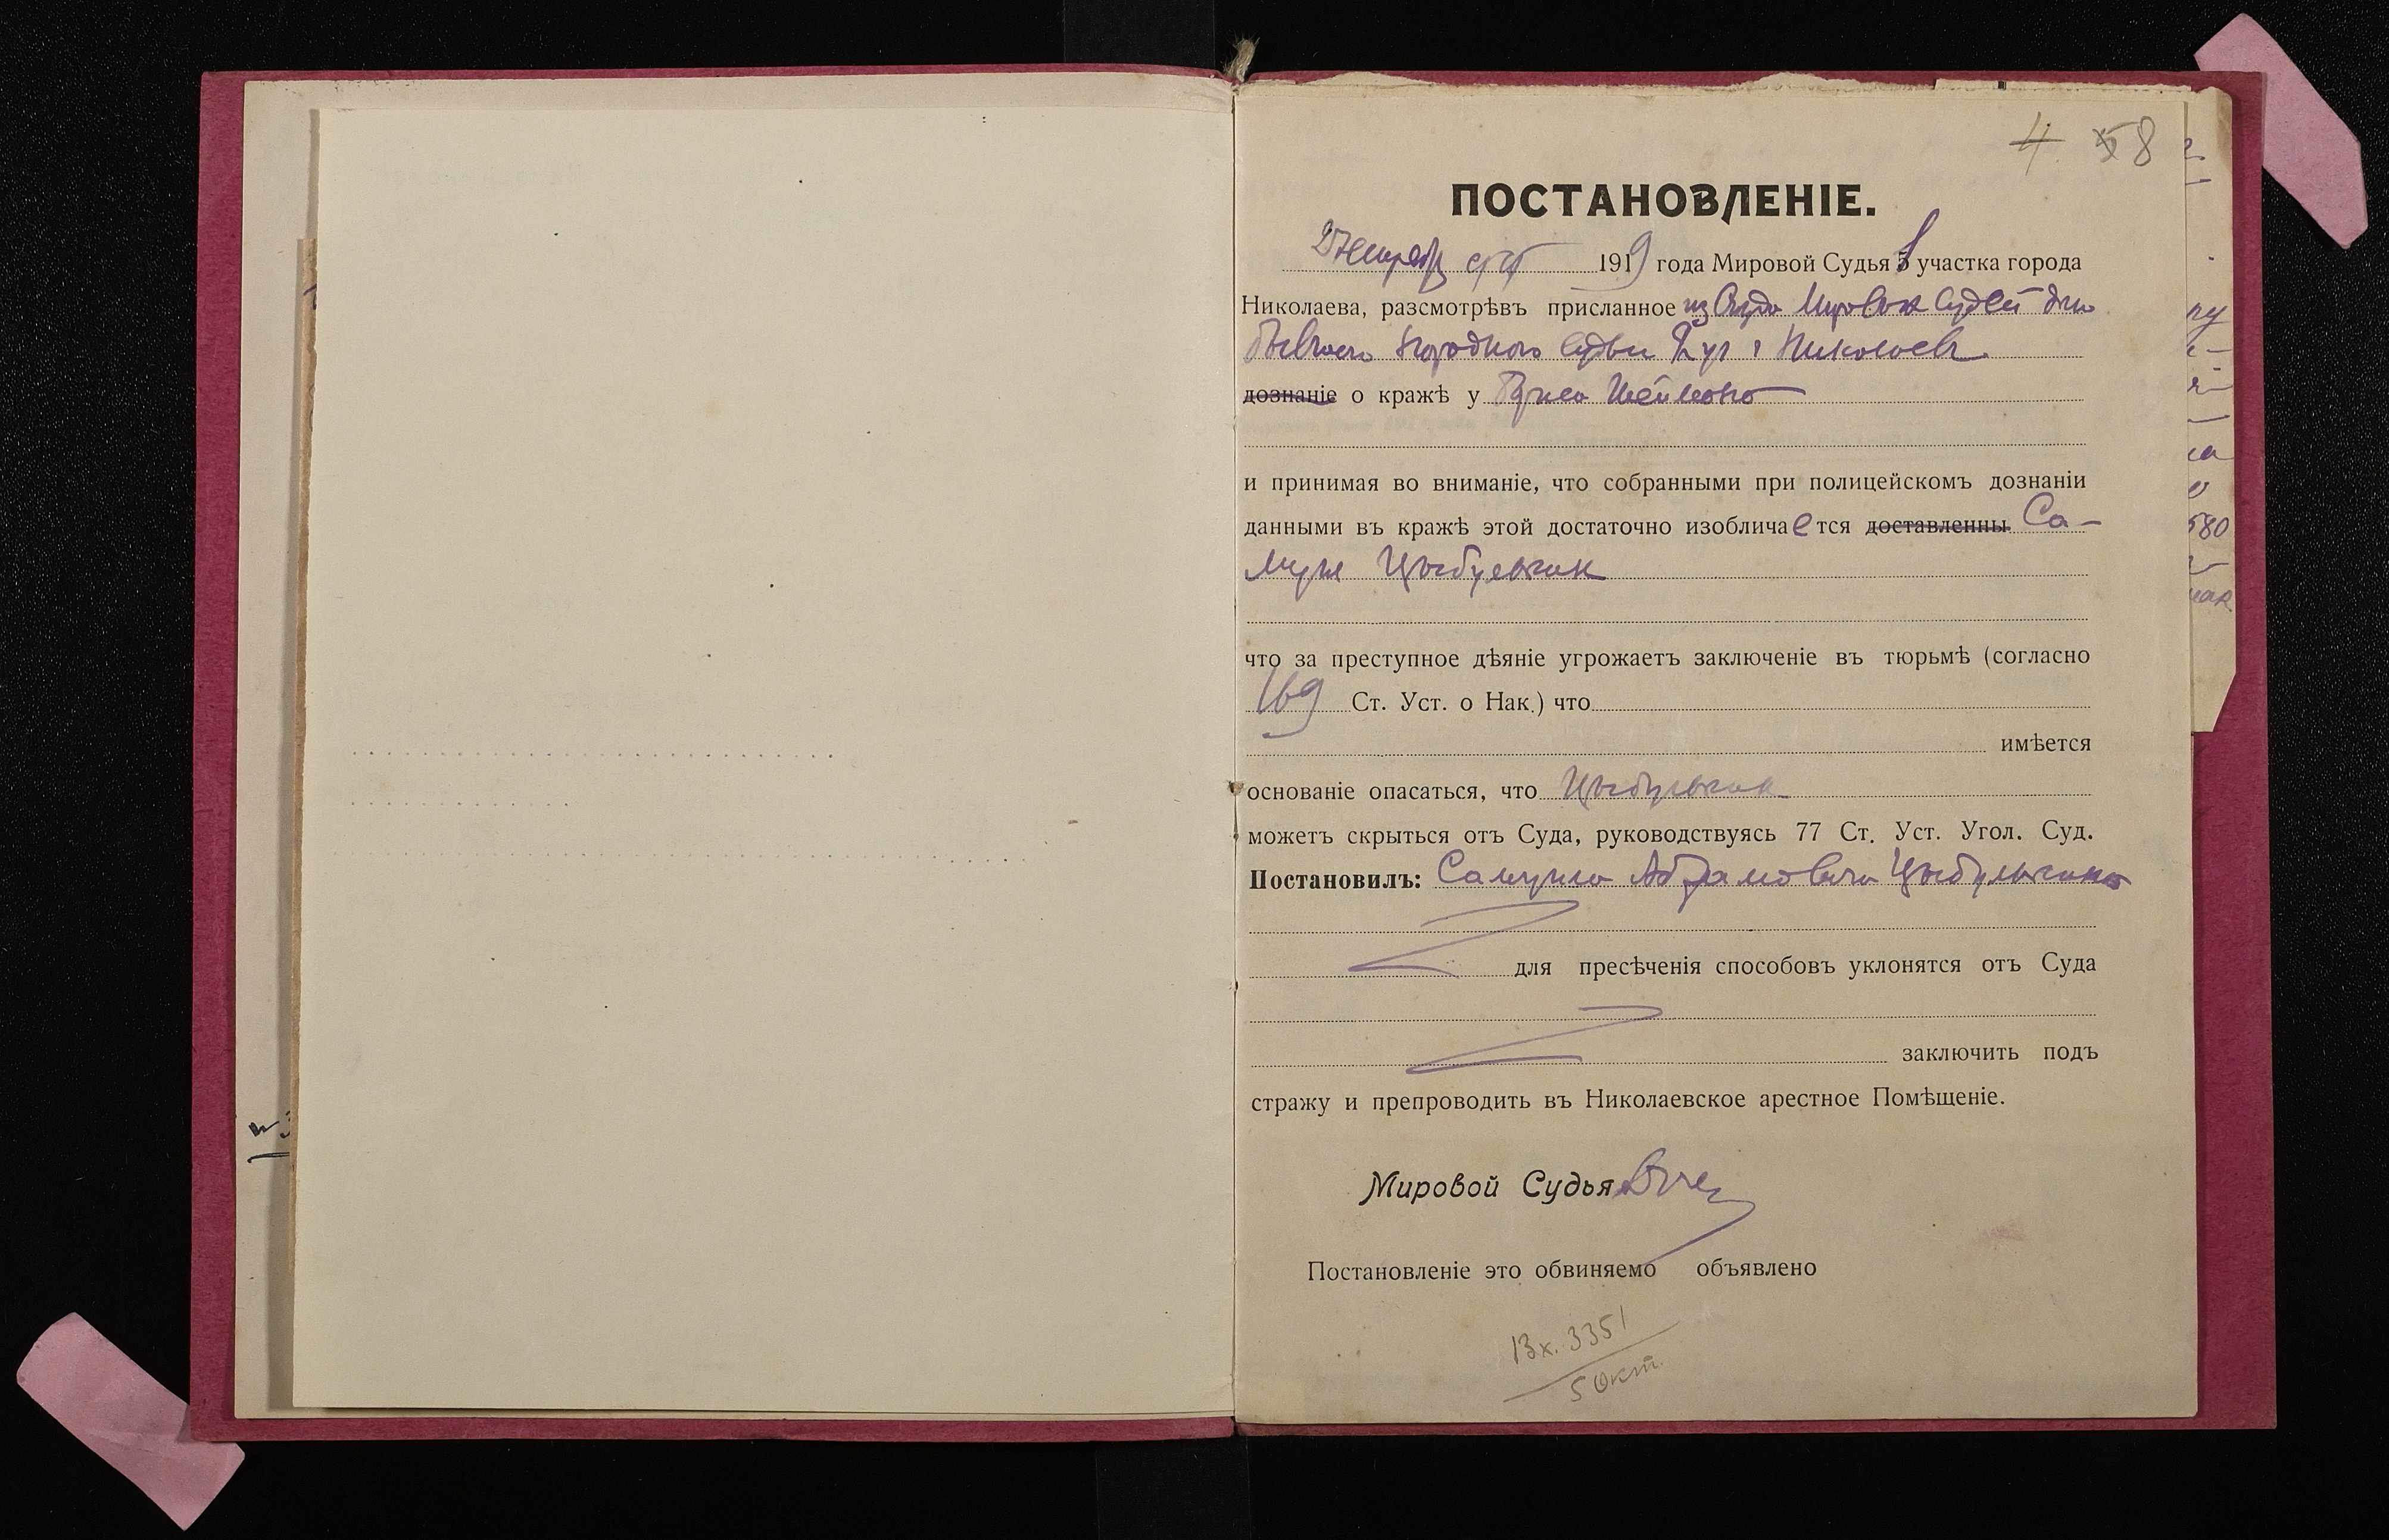 4 58
ПОСТАНОВЛЕНІЕ.
1919 года Мировой Судья участка города
Николаева, разсмотрѣвъ присланное из Съезда Мировых Судей дѣло
бывшего Народного Судьи г Николаева
дознаніе о кражѣ у Шеймана
и принимая во вниманіе, что собранными при полицейскомъ дознаніи
данными въ кражѣ этой достаточно изобличается доставленны Са-
муил Цыбульчик
что за преступное дѣяніе угрожаетъ заключеніе въ тюрьмѣ (согласно
169 Ст. Уст. о Нак.) что
имѣется
основаніе опасаться, что Цыбульчик
можетъ скрыться отъ Суда, руководствуясь 77 Ст. Уст. Угол. Суд.
Постановилъ: Самуила Абрамовича Цыбульчика
для пресѣченія способовъ уклонятся отъ Суда
заключить подъ
стражу и препроводить въ Николаевское арестное Помѣщеніе.
Мировой Судья
Постановленіе это обвиняемо объявлено
Вх. 3351
5 Окт.
580